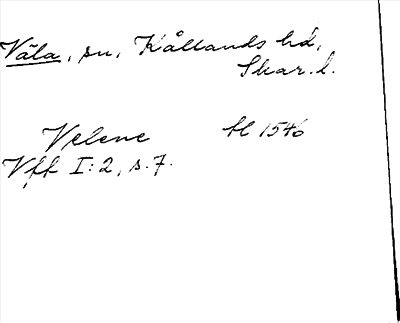 Väla, sn, Kållands hd,
Skar. l.
Velene tl 1546
Vff I:2, s. 7.